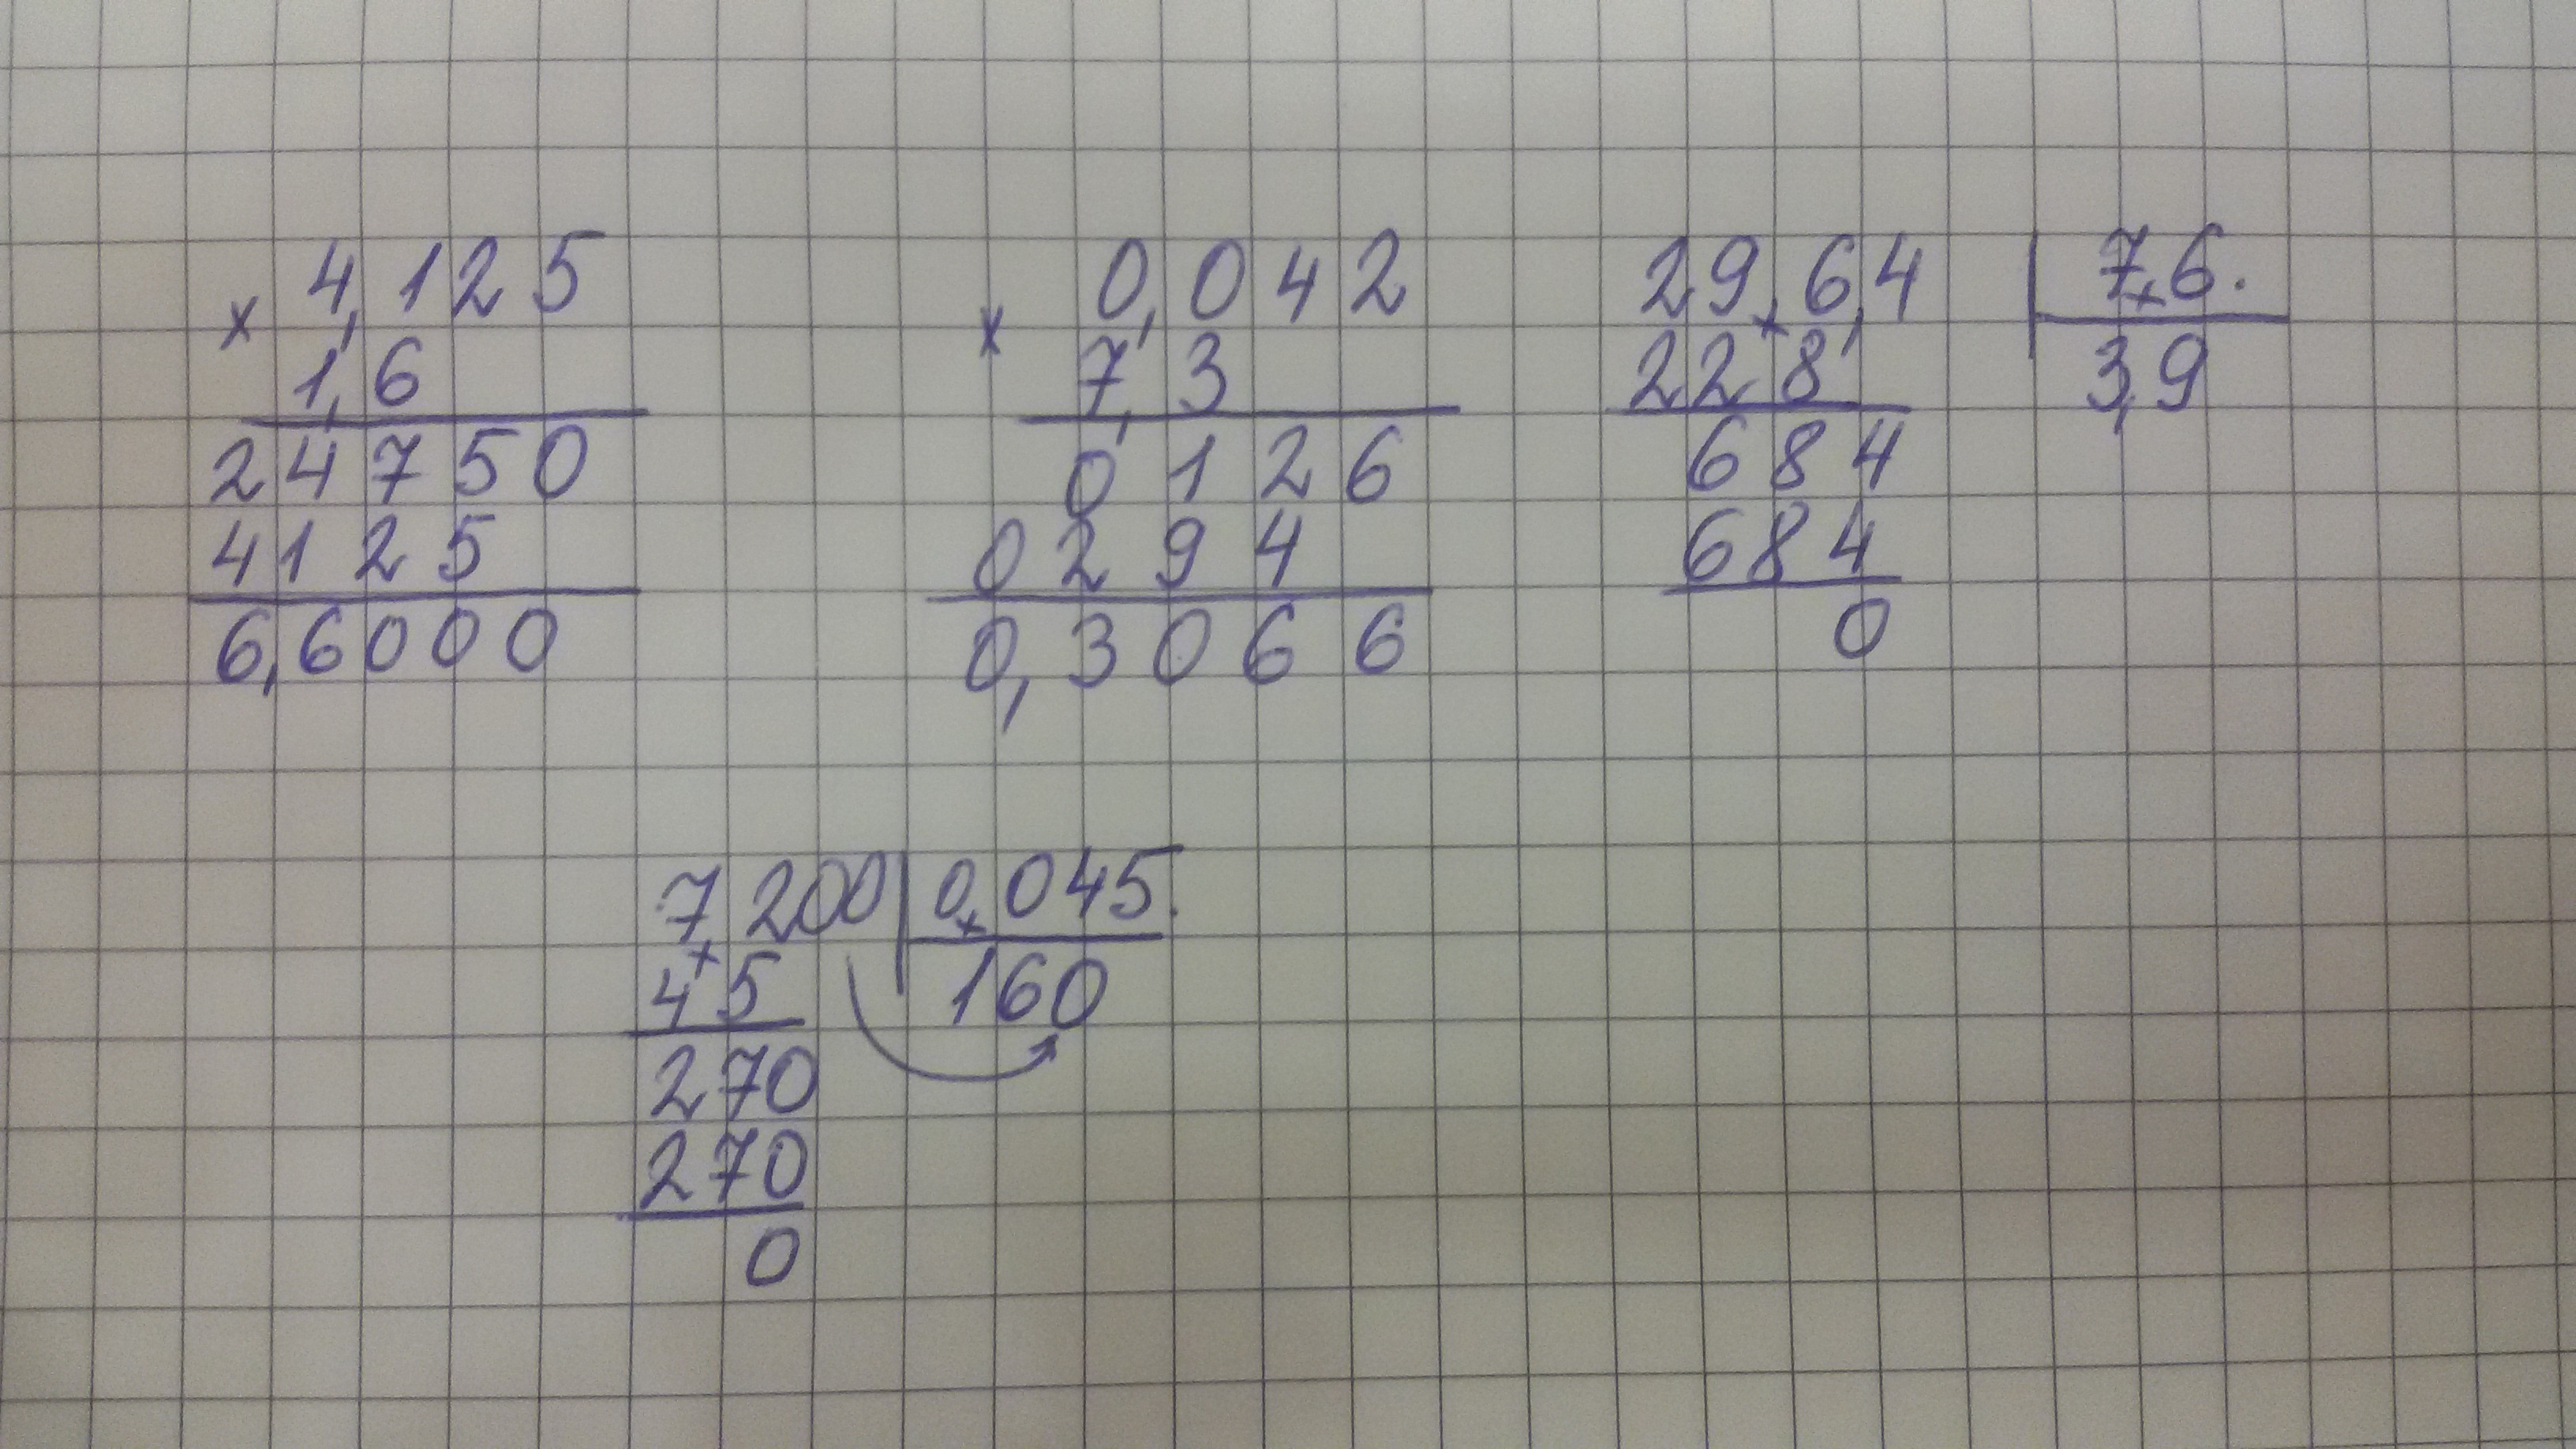 × 4,125
1,6
24750
4125
6,6000
× 0,042
7,3
0126
0294
0,3066
29,6,4 | 7,6.
228 | 3,9
684
684
0
7,200 | 0,045.
45 | 160
270
270
0